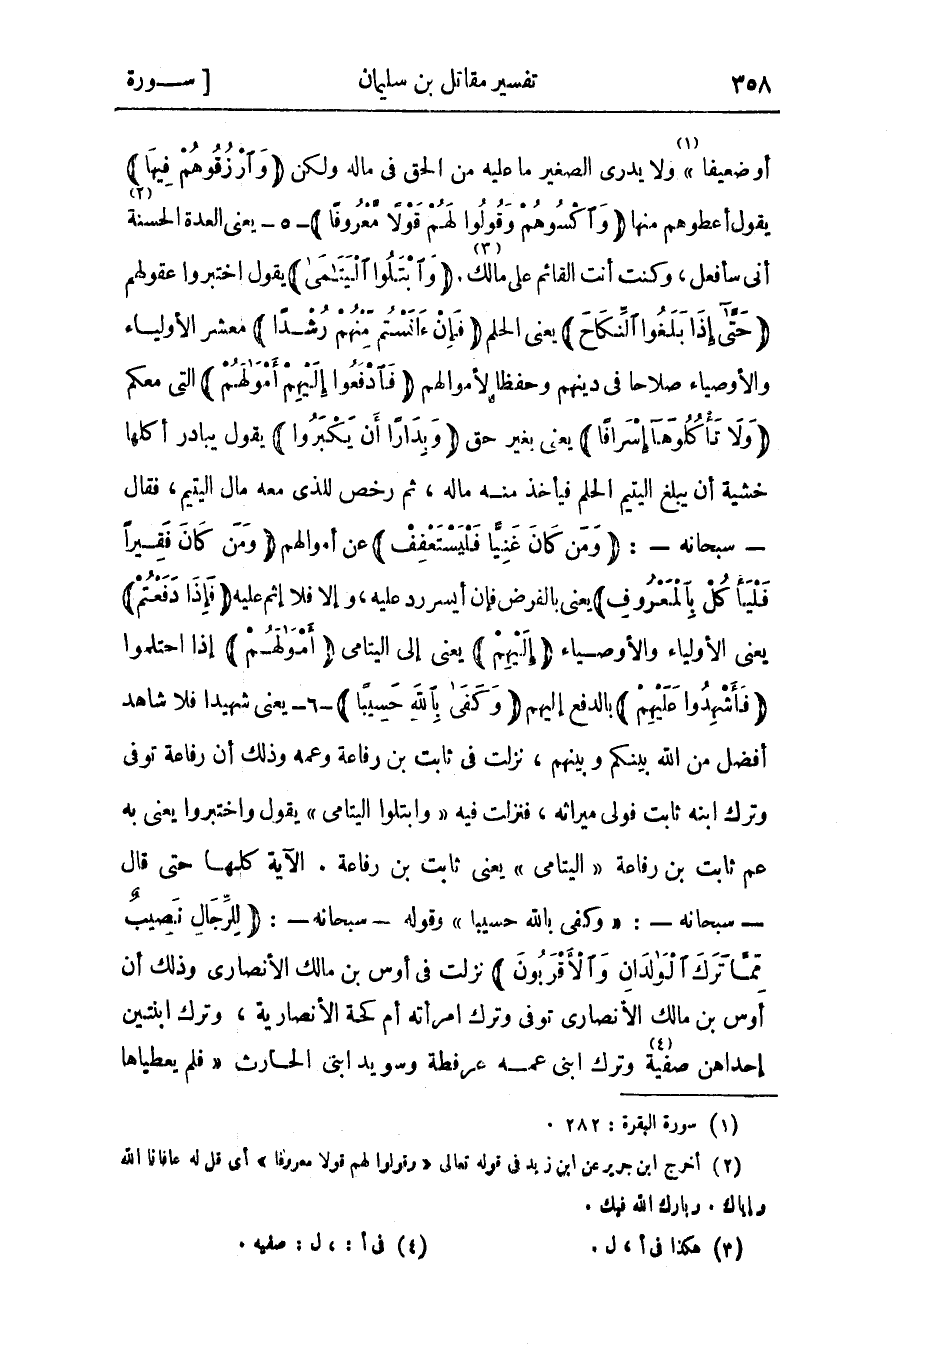 ٣٥٨ تفسير مقاتل بن سليمان [ ســورة
أو ضعيفا » (١) ولا يدرى الصغير ما عليه من الحق فى ماله ولكن ﴿ وَٱرْزُقُوهُمْ فِيهَا ﴾
يقول أعطوهم منها ﴿ وَٱكْسُوهُمْ وَقُولُوا لَهُمْ قَوْلًا مَّعْرُوفًا ﴾ - ٥ - يعنى العدة الحسنة (٢)
أنى سأفعل ، وكنت أنت القائم على مالك (٣) . ﴿ وَٱبْتَلُوا ٱلْيَتَـٰمَىٰ ﴾ يقول اختبروا عقولهم
﴿ حَتَّىٰٓ إِذَا بَلَغُوا ٱلنِّكَاحَ ﴾ يعنى الحلم ﴿ فَإِنْ ءَانَسْتُم مِّنْهُمْ رُشْـدًا ﴾ معشر الأوليـاء
والأوصياء صلاحا فى دينهم وحفظا لأموالهم ﴿ فَٱدْفَعُوا إِلَيْهِمْ أَمْوَٰلَهُمْ ﴾ التى معكم
﴿ وَلَا تَأْكُلُوهَـآ إِسْرَافًا ﴾ يعنى بغير حق ﴿ وَبِدَارًا أَن يَكْبَرُوا ﴾ يقول يبادر أكلها
خشية أن يبلغ اليتيم الحلم فيأخذ منـه ماله ، ثم رخص للذى معه مال اليتيم ، فقال
— سبحانه — : ﴿ وَمَن كَانَ غَنِيًّا فَلْيَسْتَعْفِفْ ﴾ عن أموالهم ﴿ وَمَن كَانَ فَقِـيرًا
فَلْيَأْكُلْ بِٱلْمَعْـرُوفِ ﴾ يعنى بالقرض فإن أيسر رد عليه ، وإلا فلا إثم عليه ﴿ فَإِذَا دَفَعْتُمْ ﴾
يعنى الأولياء والأوصـياء ﴿ إِلَيْهِمْ ﴾ يعنى إلى اليتامى ﴿ أَمْوَٰلَهُـمْ ﴾ إذا احتلموا
﴿ فَأَشْهِدُوا عَلَيْهِمْ ﴾ بالدفع إليهم ﴿ وَكَفَىٰ بِٱللَّهِ حَسِيبًا ﴾ - ٦ - يعنى شهيدا فلا شاهد
أفضل من الله بينكم وبينهم ، نزلت فى ثابت بن رفاعة وعمه وذلك أن رفاعة توفى
وترك ابنه ثابت فولى ميراثه ، فنزلت فيه « وابتلوا اليتامى » يقول واختبروا يعنى به
عم ثابت بن رفاعة « اليتامى » يعنى ثابت بن رفاعة . الآية كلهـا حتى قال
— سبحانه — : « وكفى بالله حسيبا » وقوله — سبحانه — : ﴿ لِلرِّجَالِ نَصِيبٌ
مِّمَّـا تَرَكَ ٱلْوَٰلِدَانِ وَٱلْأَقْرَبُونَ ﴾ نزلت فى أوس بن مالك الأنصارى وذلك أن
أوس بن مالك الأنصارى توفى وترك امرأته أم كحة الأنصارية ، وترك ابنتين
إحداهن صفية (٤) وترك ابنى عمـه عرفطة وسويد ابنى الحـارث « فلم يعطياها
(١) سورة البقرة : ٢٨٢ .
(٢) أخرج ابن جرير عن ابن زيد فى قوله تعالى « وقولوا لهم قولا معروفا » أى قل له عافانا الله
وإياك . وبارك الله فيك .
(٣) هكذا فى أ ، ل .
(٤) فى أ : ، ل : صفيه .